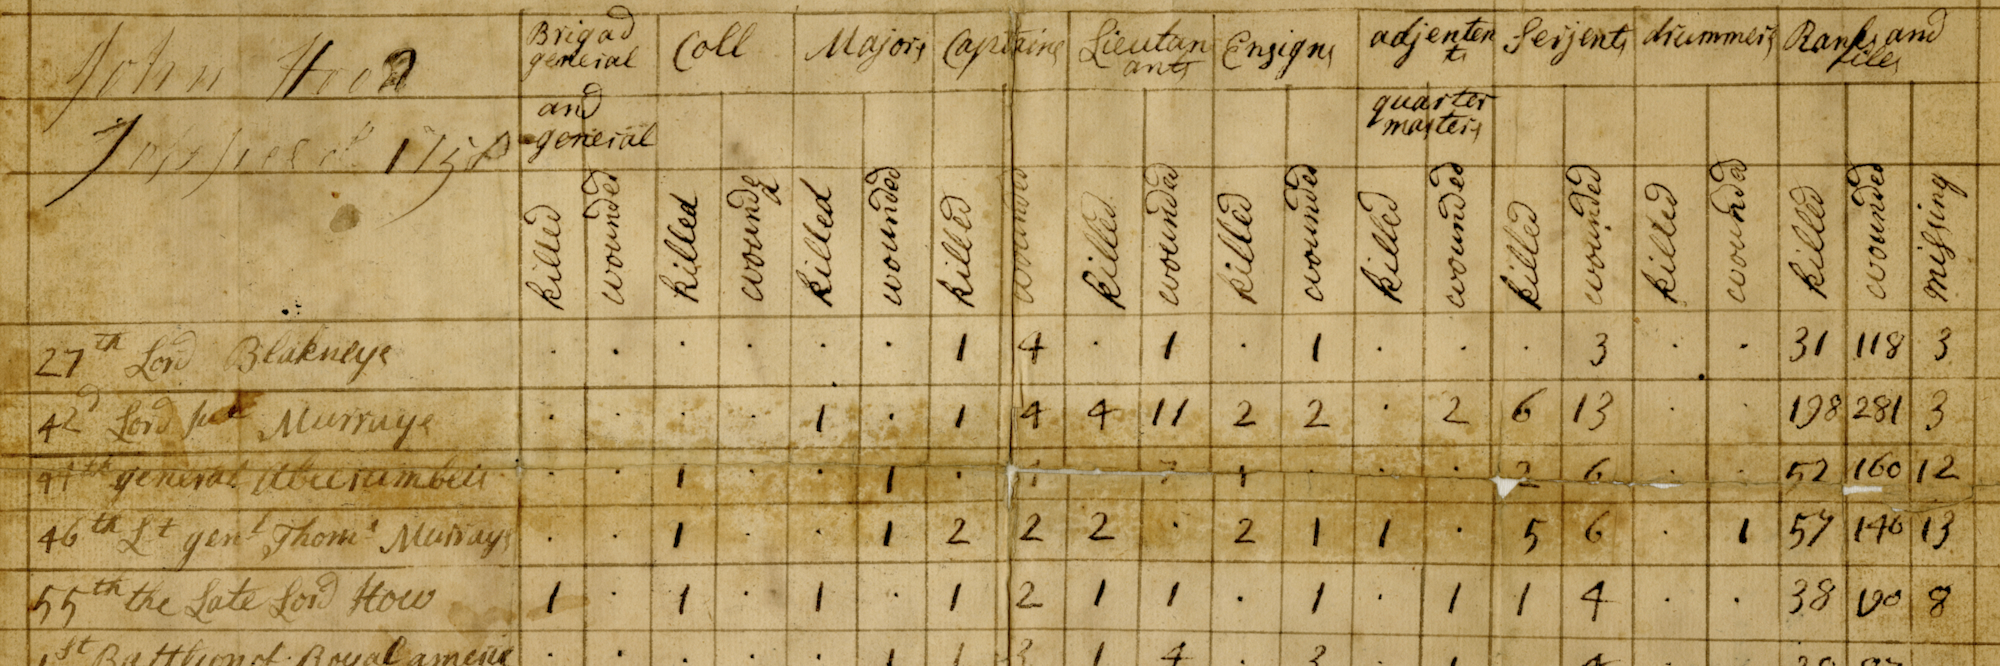 John Hood
1758
Brigad general and general Coll Majors Captains Lieutanants Ensigns adjentents quarter masters Serjents drummers Ranks and files
killed wounded killed wounded killed wounded killed wounded killed wounded killed wounded killed wounded killed wounded killed wounded killed wounded missing
27th Lord Blakneye . . . . . . 1 4 . 1 . 1 . . . 3 . . 31 118 3
42d Lord Murraye . . . . 1 . 1 4 4 11 2 2 . 2 6 13 . . 198 281 3
44th general Abercrumbei . . 1 . . 1 . 1 . . . 2 6 . . 52 160 12
46th Lt genl Thoms Murrays . . 1 . . 1 2 2 2 . 2 1 1 . 5 6 . 1 57 146 13
55th the Late Lord How 1 . 1 . 1 . 1 2 1 1 . 1 . 1 1 4 . . 38 8
1st Battlion of Royal americ . . . . . 1 1 3 1 4 . 3 . 1 . 4 . .